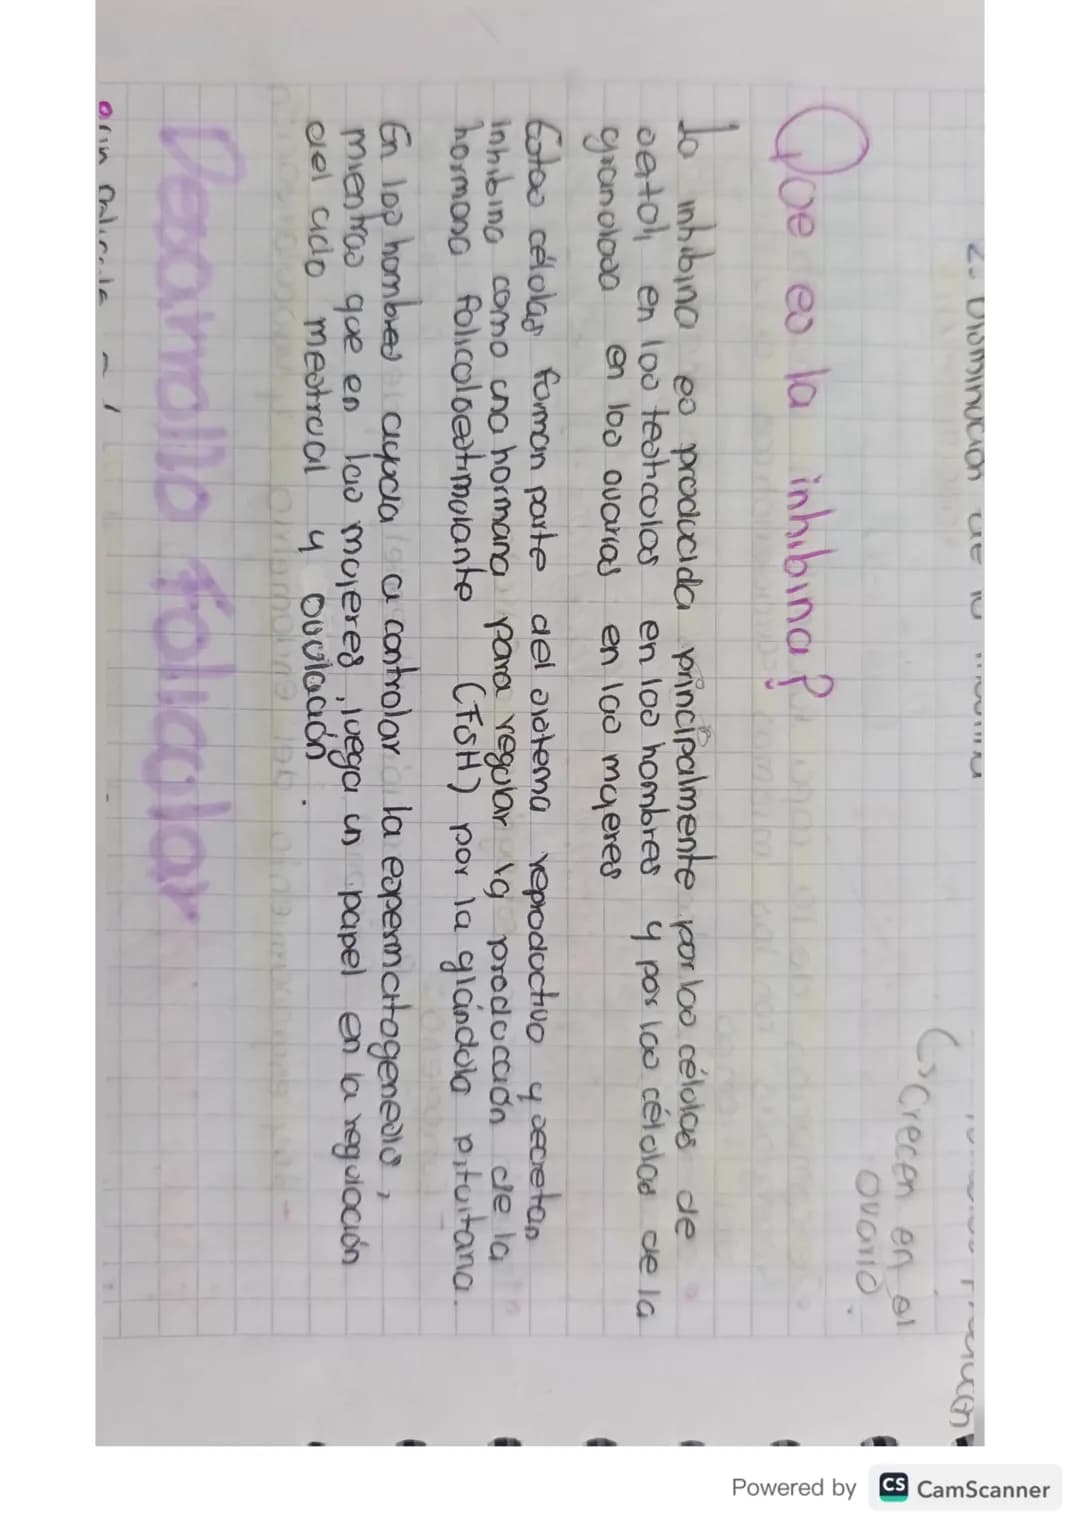 2. Disminución de la
Crecen en el
ovario.
Que es la inhibina?
la inhibina es producida principalmente por las células de
sertoli en los testiculos en los hombres y por las células de la
granulosa en los ovarios en las mujeres
Estas células forman parte del sistema reproductivo y secretan
inhibina como una hormona para regular la producción de la
hormona foliculoestimulante (FSH) por la glándula pituitaria.
En los hombres ayuda a controlar la espermatogenesis,
mientras que en las mujeres, juega un papel en la regulación
del ciclo mestrual y ovulación.
Desarrollo folicular
Powered by CS CamScanner